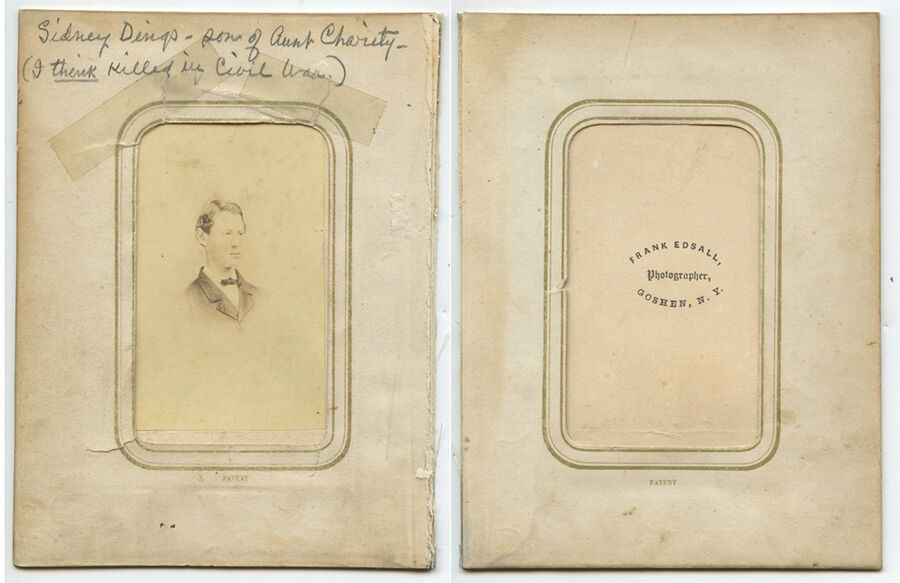 Sidney Dings - son of Aunt Charity -
(I think killed in Civil War.)
PATENT
FRANK EDSALL,
Photographer,
GOSHEN, N. Y.
PATENT